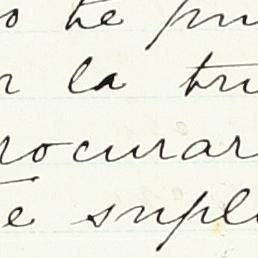 o te pu
r la tri
rocurar
te supl